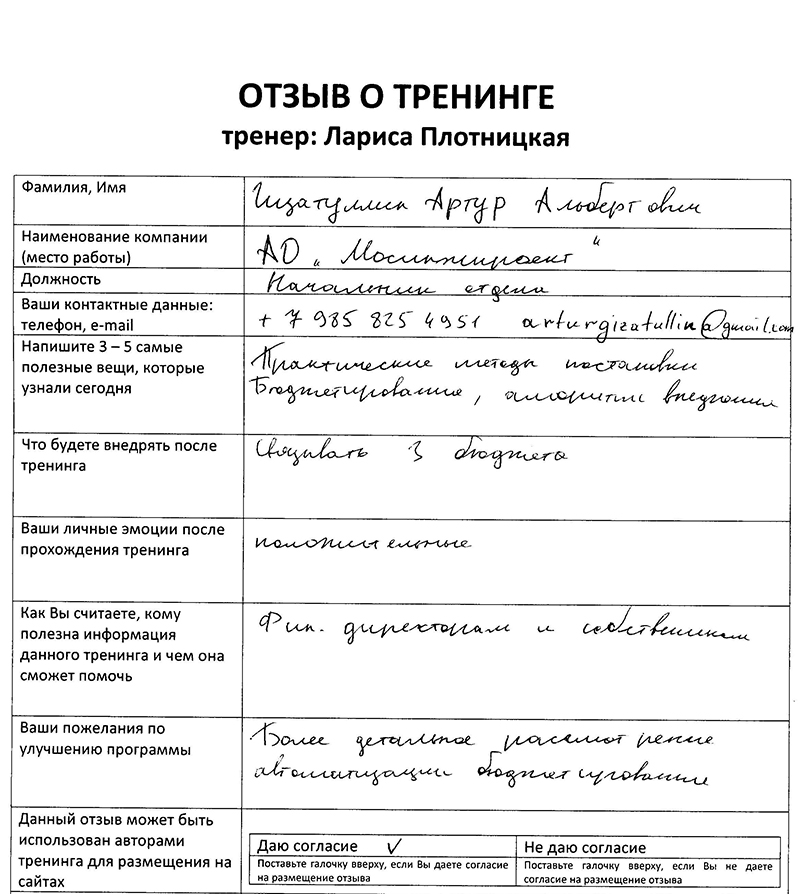 ОТЗЫВ О ТРЕНИНГЕ
тренер: Лариса Плотницкая
Фамилия, Имя
Гизатуллин Артур Альбертович
Наименование компании
(место работы)
АО „Мосинжпроект“
Должность
Начальник отдела
Ваши контактные данные:
телефон, e-mail
+ 7 985 825 4951 arturgizatullin@gmail.com
Напишите 3 – 5 самые
полезные вещи, которые
узнали сегодня
Практические методы постановки
Бюджетирования, алгоритм внедрения
Что будете внедрять после
тренинга
Связывать 3 бюджета
Ваши личные эмоции после
прохождения тренинга
положительные
Как Вы считаете, кому
полезна информация
данного тренинга и чем она
сможет помочь
Фин. директорам и собственникам
Ваши пожелания по
улучшению программы
Более детальное рассмотрение
автоматизации бюджетирования
Данный отзыв может быть
использован авторами
тренинга для размещения на
сайтах
Даю согласие ✓
Поставьте галочку вверху, если Вы даете согласие
на размещение отзыва
Не даю согласие
Поставьте галочку вверху, если Вы не даете
согласие на размещение отзыва